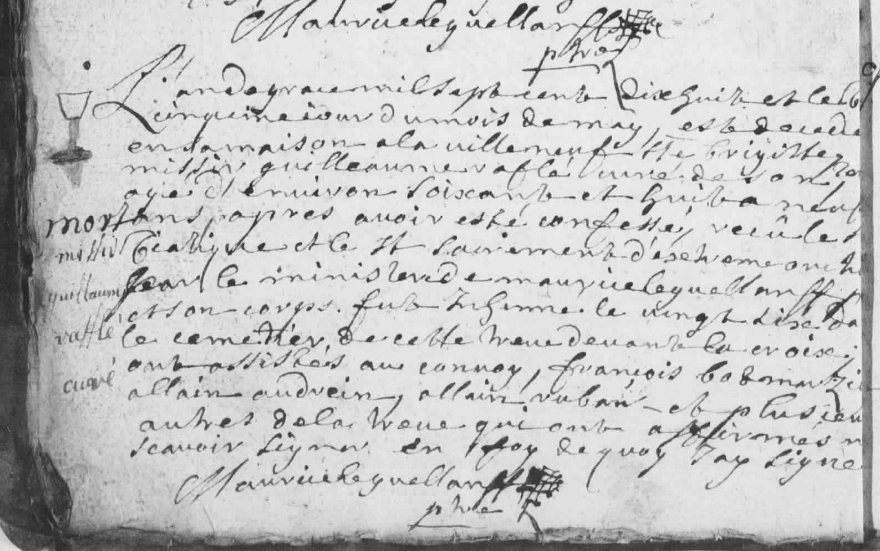 Mauricelequellanff
ptre
L'an de grace mil sept cent dix huit et le
cinquieme iour du mois de may, est decede
en sa maison a la ville neufve Ste brigitte,
missir guilleaume rafle cure de son
age d'environ soixante et huit a neuf
mort ans papres avoir esté confessé, recu le
missir viatique et le St sacrement d'extreme onc
guillaume par le ministere de mauricelequellanff
et son corps fut inhumé le vingt six da
rafflé le cemetier de cette treve devant la croix,
curé ont assistés au convoy, françois
allain audrein, allain ruban et plusieu
autres de la treve qui ont affirmés n
scavoir signer en foy de quoy Jay signe
Mauricelequellanff
ptre